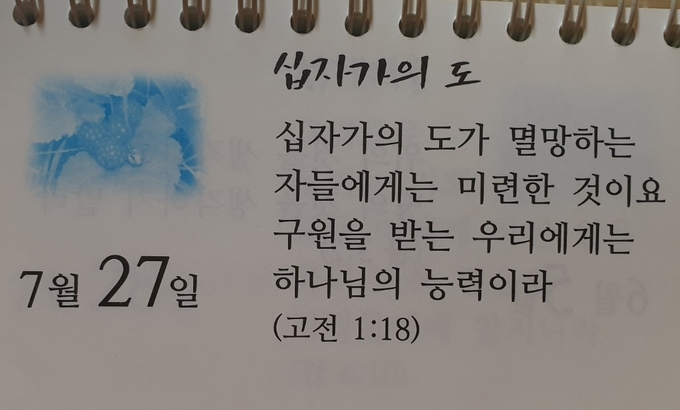 십자가의 도
십자가의 도가 멸망하는
자들에게는 미련한 것이요
구원을 받는 우리에게는
하나님의 능력이라
(고전 1:18)
7월 27일